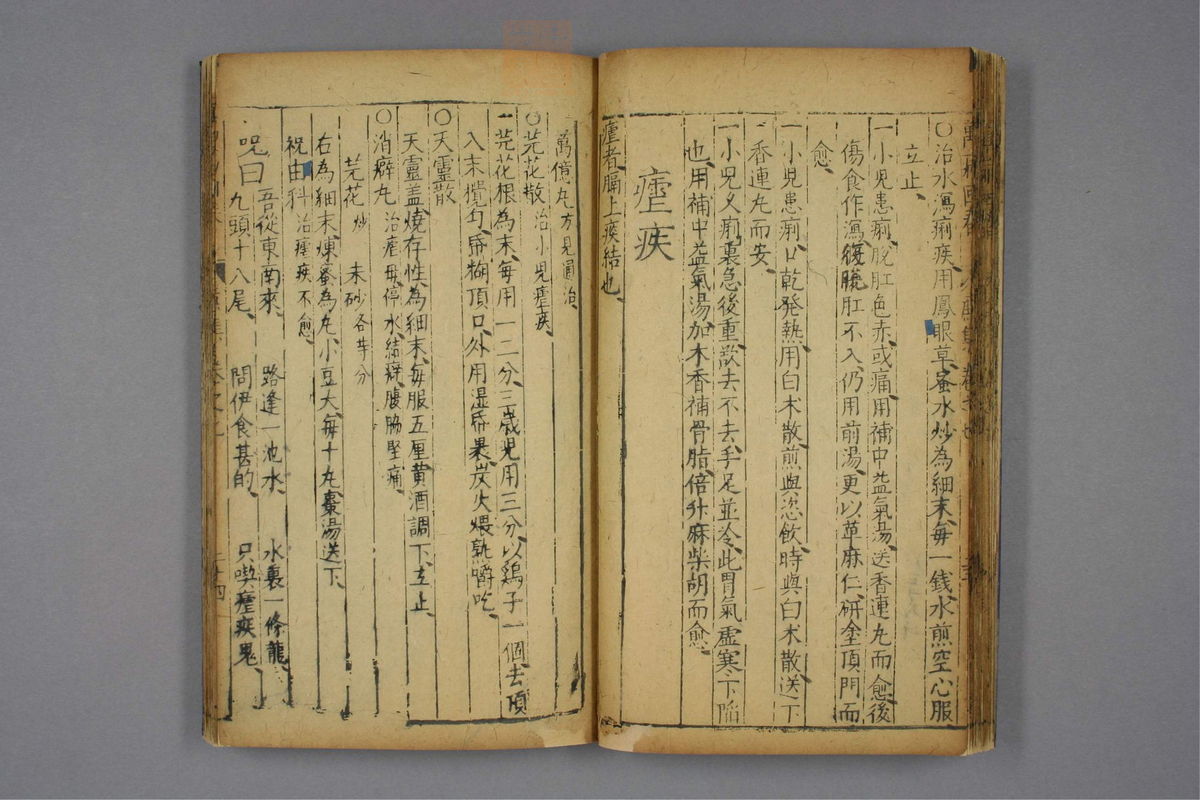 ○治水瀉痢疾用鳳眼草蜜水炒為細末每一錢水煎空心服
立止
一小児患痢脫肛色赤或痛用補中益氣湯送香連丸而愈後
傷食作瀉復脫肛不入仍用前湯更以草麻仁研塗頂門而
愈
一小児患痢口乾発熱用白术散煎與恣飲時與白术散送下
香連丸而安
一小児久痢裏急後重欲去不去手足並冷此胃氣虛寒下陷
也用補中益氣湯加木香補骨脂倍升麻柴胡而愈
瘧疾
瘧者膈上痰結也
萬億丸方見通治
○芫花散 治小児瘧疾
一芫花根為末每用一二分三歲児用三分以鷄子一個去頂
入末攪勻昏糊頂口外用湿昏裹炭火煨熟嚼吃
○天靈散
天靈盖燒存性為細末每服五厘黄酒調下立止
○消癖丸 治瘧母停水結癖腹脇堅痛
芫花炒 朱砂各等分
右為細末煉蜜為丸小豆大每十丸棗湯送下
祝由科 治瘧疾不愈
咒曰 吾從東南來 路逢一池水 水裏一條龍
九頭十八尾 問伊食甚的 只喫瘧疾鬼